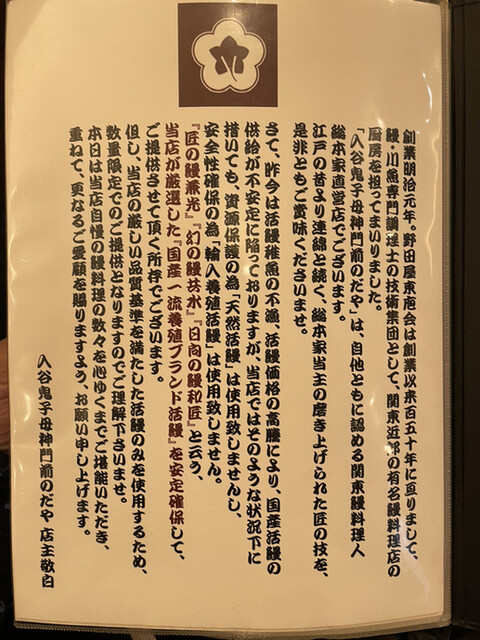 創業明治元年。野田屋東庖会は創業以来百五十年に亘りまして、
鰻・川魚専門調理士の技術集団として、関東近郊の有名鰻料理店の
厨房を担ってまいりました。
「入谷鬼子母神門前のだや」は、自他ともに認める関東鰻料理人
総本家直営店でございます。
江戸の昔より連綿と続く、総本家当主の磨き上げられた匠の技を、
是非ともご賞味くださいませ。
さて、昨今は活鰻稚魚の不漁、活鰻価格の高騰により、国産活鰻の
供給が不安定に陥っておりますが、当店ではそのような状況下に
措いても、資源保護の為「天然活鰻」は使用致しませんし、
安全性確保の為「輸入養殖活鰻」は使用致しません。
『匠の鰻兼光』『幻の鰻共水』『日向の鰻和匠』と云う、
当店が厳選した『国産一流養殖ブランド活鰻』を安定確保して、
ご提供させて頂く所存でございます。
但し、当店の厳しい品質基準を満たした活鰻のみを使用するため、
数量限定でのご提供となりますのでご理解下さいませ。
本日は当店自慢の鰻料理の数々を心ゆくまでご堪能いただき、
重ねて、更なるご愛顧を賜りますよう、お願い申し上げます。
入谷鬼子母神門前のだや 店主敬白